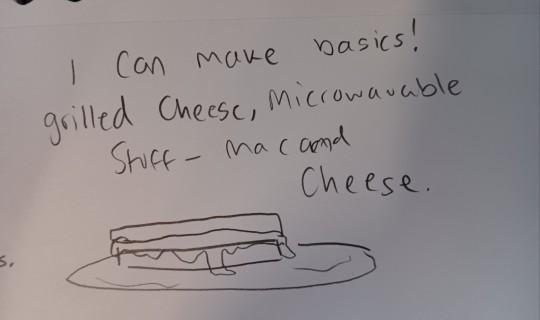 I can make basics!
grilled cheese, microwavable
stuff - mac and
cheese.
s.